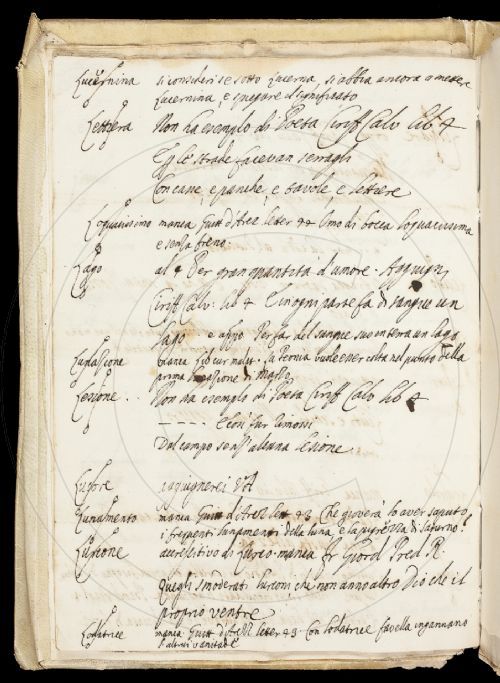 Lucernina si consideri se sotto Lucerna, si abbia ancora a metter
Lucernina, e spiegare il significato
Lettiera Non ha esempio di Poeta Ciriff Calv lib 4
E gle strade facevan serragli
Con cane, e panche, e tavole, e lettiere
Loquacissimo manca Guitt d'Arez letter 44 Omo di bocca loquacissima
e senza freno.
Lago al 4 Per gran quantità d'umore. Aggiugn.
Ciriff Calv: lib 4 E in ogni parte fa di sangue un
lago e appo. Per far del sangue suo en terra un lago
Lunazione manca lib cur malat. la Peonia vuole esser colta nel punto della
prima lunazione di Marzo
Lesione .. Non ha esempio di Poeta Ciriff Calv lib 4
---- E così fur rimossi
Dal campo senz'alcuna lesione
Lutore aggiugnerei VA
Lunamento manca Guitt d'Arez lett 43. Che gioverà lo aver saputo
i frequenti lunamenti della luna, e la pigrezza di saturno
Lurcone accrescitivo di Lurco. manca Fr Giord Pred R.
Quegli smoderati lurconi che non anno altro Dio che il
proprio ventre
Lodatrice manca Guitt d'Arez letter 43. Con lodatrice favella ingannano